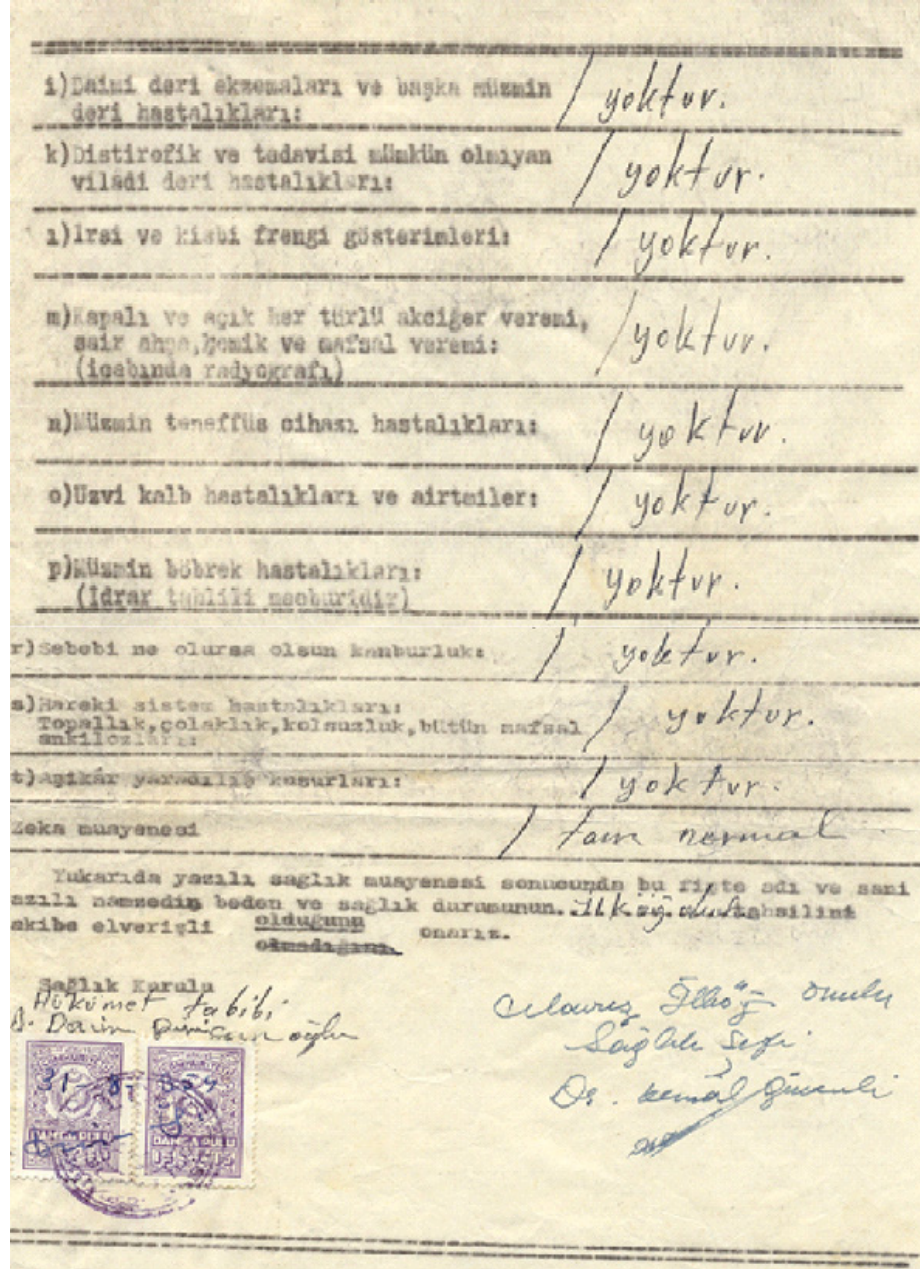 i)Daimi deri ekzemaları ve başka müzmin / yoktur.
deri hastalıkları:
k)Distirofik ve tedavisi mümkün olmıyan / yoktur.
viladi deri hastalıkları:
ı)Irsi ve kisbi frengi gösterimleri: / yoktur.
m)Kapalı ve açık her türlü akciğer veremi, / yoktur.
sair ahşa,kemik ve mafsal veremi:
(icabında radyografı)
n)Müzmin teneffüs cihazı hastalıkları: / yoktur.
o)Uzvi kalb hastalıkları ve airtmiler: / yoktur.
p)Müzmin böbrek hastalıkları: / yoktur.
(İdrar tahlili mecburidir)
r)Sebebi ne olursa olsun kanburluk: / yoktur.
s)Hareki sistem hastalıkları: / yoktur.
Topallık,çolaklık,kolsuzluk,bütün mafsal
ankilozları:
t)Aşikâr yaradılış kusurları: / yoktur.
Zeka muayenesi / tam normal
Yukarıda yazılı sağlık muayenesi sonucunda bu fişte adı ve sanı
azılı namzedin beden ve sağlık durumunun. tahsiline
akibe elverişli olduğunu onarız.
olmadığını
Sağlık Kurulu
Hükümet tabibi
Sağlık Şefi
Dr. Kemal
31 8
DAMGA PULU
15